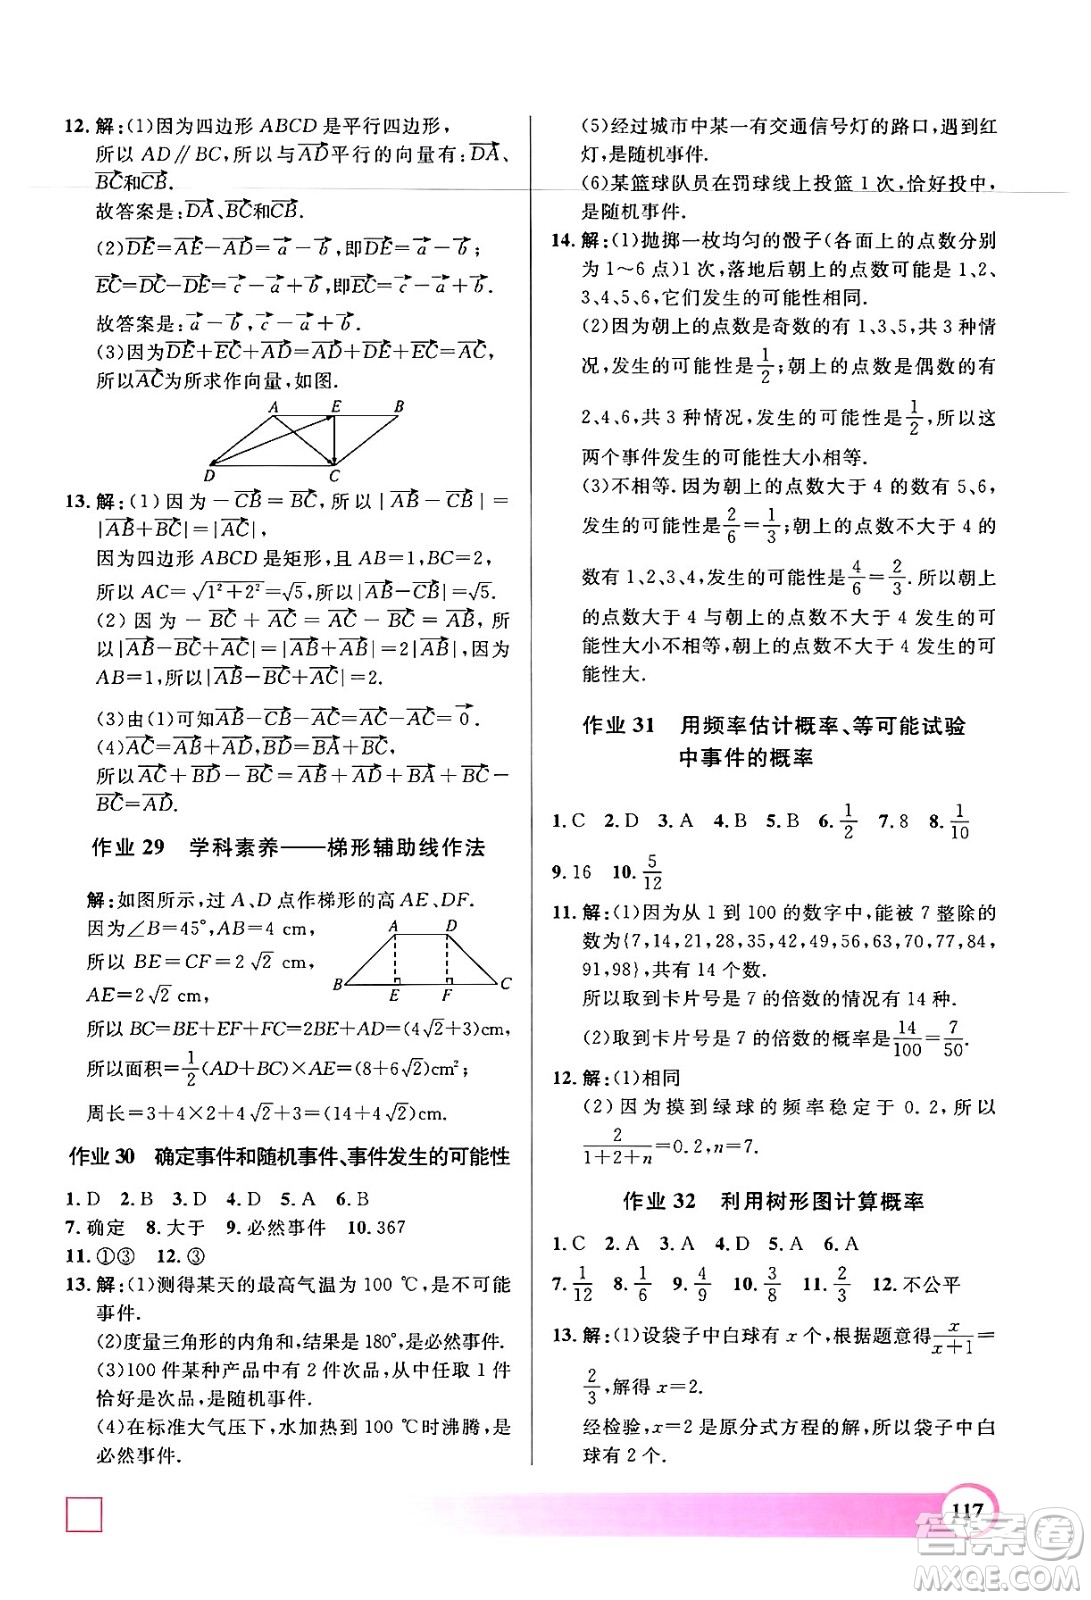 12.解:(1)因为四边形 ABCD 是平行四边形,
所以 AD∥BC,所以与$\overrightarrow{AD}$平行的向量有:$\overrightarrow{DA}$、
$\overrightarrow{BC}$和$\overrightarrow{CB}$.
故答案是:$\overrightarrow{DA}$、$\overrightarrow{BC}$和$\overrightarrow{CB}$.
(2)$\overrightarrow{DE}=\overrightarrow{AE}-\overrightarrow{AD}=\overrightarrow{a}-\overrightarrow{b}$,即$\overrightarrow{DE}=\overrightarrow{a}-\overrightarrow{b}$;
$\overrightarrow{EC}=\overrightarrow{DC}-\overrightarrow{DE}=\overrightarrow{c}-\overrightarrow{a}+\overrightarrow{b}$,即$\overrightarrow{EC}=\overrightarrow{c}-\overrightarrow{a}+\overrightarrow{b}$.
故答案是:$\overrightarrow{a}-\overrightarrow{b}$,$\overrightarrow{c}-\overrightarrow{a}+\overrightarrow{b}$.
(3)因为$\overrightarrow{DE}+\overrightarrow{EC}+\overrightarrow{AD}=\overrightarrow{AD}+\overrightarrow{DE}+\overrightarrow{EC}=\overrightarrow{AC}$,
所以$\overrightarrow{AC}$为所求作向量,如图.
A E B
D C
13.解:(1)因为$-\overrightarrow{CB}=\overrightarrow{BC}$,所以$|\overrightarrow{AB}-\overrightarrow{CB}|=$
$|\overrightarrow{AB}+\overrightarrow{BC}|=|\overrightarrow{AC}|$,
因为四边形 ABCD 是矩形,且 AB=1,BC=2,
所以 AC=$\sqrt{1^2+2^2}=\sqrt{5}$,所以$|\overrightarrow{AB}-\overrightarrow{CB}|=\sqrt{5}$.
(2)因为$-\overrightarrow{BC}+\overrightarrow{AC}=\overrightarrow{AC}-\overrightarrow{BC}=\overrightarrow{AB}$,所
以$|\overrightarrow{AB}-\overrightarrow{BC}+\overrightarrow{AC}|=|\overrightarrow{AB}+\overrightarrow{AB}|=2|\overrightarrow{AB}|$,因为
AB=1,所以$|\overrightarrow{AB}-\overrightarrow{BC}+\overrightarrow{AC}|=2$.
(3)由(1)可知$\overrightarrow{AB}-\overrightarrow{CB}-\overrightarrow{AC}=\overrightarrow{AC}-\overrightarrow{AC}=\overrightarrow{0}$.
(4)$\overrightarrow{AC}=\overrightarrow{AB}+\overrightarrow{AD}$,$\overrightarrow{BD}=\overrightarrow{BA}+\overrightarrow{BC}$,
所以$\overrightarrow{AC}+\overrightarrow{BD}-\overrightarrow{BC}=\overrightarrow{AB}+\overrightarrow{AD}+\overrightarrow{BA}+\overrightarrow{BC}-$
$\overrightarrow{BC}=\overrightarrow{AD}$.
作业 29 学科素养——梯形辅助线作法
解:如图所示,过 A、D 点作梯形的高 AE、DF.
因为∠B=45°,AB=4 cm,
所以 BE=CF=2$\sqrt{2}$ cm,
AE=2$\sqrt{2}$ cm,
A D
B E F C
所以 BC=BE+EF+FC=2BE+AD=(4$\sqrt{2}$+3)cm,
所以面积=$\frac{1}{2}$(AD+BC)·AE=(8+6$\sqrt{2}$)cm²;
周长=3+4×2+4$\sqrt{2}$+3=(14+4$\sqrt{2}$)cm.
作业 30 确定事件和随机事件、事件发生的可能性
1.D 2.B 3.D 4.D 5.D 6.B
7.确定 8.大于 9.必然事件 10.367
11.①③ 12.③
13.解:(1)测得某天的最高气温为 100 ℃,是不可能
事件.
(2)度量三角形的内角和,结果是 180°,是必然事件.
(3)100 件某种产品中有 2 件次品,从中任取 1 件
恰好是次品,是随机事件.
(4)在标准大气压下,水加热到 100 ℃时沸腾,是
必然事件.
(5)经过城市中某一有交通信号灯的路口,遇到红
灯,是随机事件.
(6)某篮球队员在罚球线上投篮 1 次,恰好投中,
是随机事件.
14.解:(1)抛掷一枚均匀的骰子(各面上的点数分别
为 1~6 点)1 次,落地后朝上的点数可能是 1、2、
3、4、5、6,它们发生的可能性相同.
(2)因为朝上的点数是奇数的有 1、3、5,共 3 种情
况,发生的可能性是$\frac{1}{2}$;朝上的点数是偶数的有
2、4、6,共 3 种情况,发生的可能性是$\frac{1}{2}$,所以这
两个事件发生的可能性大小相等.
(3)不相等.因为朝上的点数大于 4 的数有 5、6,
发生的可能性是$\frac{2}{6}=\frac{1}{3}$;朝上的点数不大于 4 的
数有 1、2、3、4,发生的可能性是$\frac{4}{6}=\frac{2}{3}$.所以朝上
的点数大于 4 与朝上的点数不大于 4 发生的可
能性大小不相等,朝上的点数不大于 4 发生的可
能性大.
作业 31 用频率估计概率、等可能试验
中事件的概率
1.C 2.D 3.A 4.B 5.B 6.$\frac{1}{2}$ 7.8 8.$\frac{1}{10}$
9.16 10.$\frac{5}{12}$
11.解:(1)因为从 1 到 100 的数字中,能被 7 整除的
数为{7,14,21,28,35,42,49,56,63,70,77,84,
91,98},共有 14 个数.
所以取到卡片号是 7 的倍数的情况有 14 种.
(2)取到卡片号是 7 的倍数的概率$\frac{14}{100}=\frac{7}{50}$.
12.解:(1)相同
(2)因为摸到绿球的频率稳定于 0.2,所以
$\frac{2}{1+2+n}$=0.2,n=7.
作业 32 利用树形图计算概率
1.C 2.A 3.A 4.D 5.A 6.A
7.$\frac{1}{12}$ 8.$\frac{1}{6}$ 9.$\frac{4}{9}$ 10.$\frac{3}{8}$ 11.$\frac{2}{3}$ 12.不公平
13.解:(1)设袋子中白球有 x 个,根据题意得$\frac{x}{x+1}$=
$\frac{2}{3}$,解得 x=2.
经检验,x=2 是原分式方程的解,所以袋子中白
球有 2 个.
117
答案圈
MXQE.COM